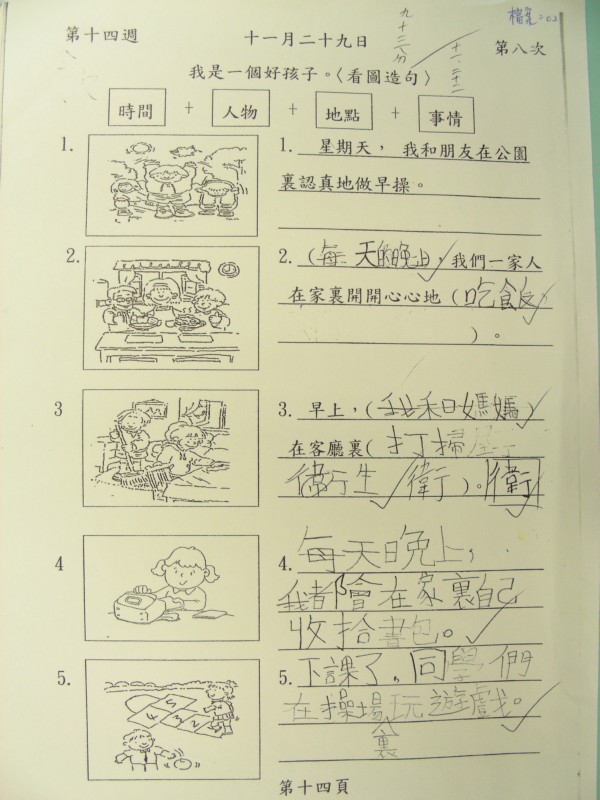 第十四週 十一月二十九日 第八次
我是一個好孩子。〈看圖造句〉
時間 + 人物 + 地點 + 事情
1. 1. 星期天，我和朋友在公園
裏認真地做早操。
2. 2. (每天的晚上，我們一家人
在家裏開開心心地(吃飯
)。
3 3. 早上，(我和媽媽)
在客廳裏(打掃
衛生 衛)。衛
4 4. 每天晚上，
我都會在家裏自己
收拾書包。
5. 5. 下課了，同學們
在操場玩遊戲。
裏
第十四頁